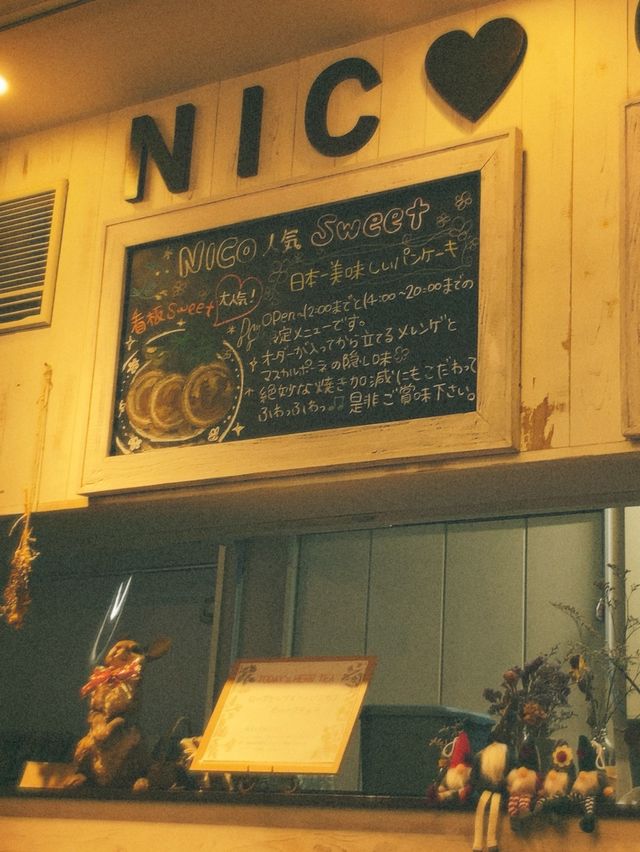 NIC
NICO 人気 Sweet
日本一美味しいパンケーキ
看板Sweet
大人気!
OPEN~12:00までと14:00~20:00までの
定メニューです。
オーダーが入ってから立てるメレンゲと
マスカルポーネの隠し味
絶妙な焼き加減にもこだわって
ふわっふわっ♫ 是非ご賞味下さい。
TODAY'S HERB TEA